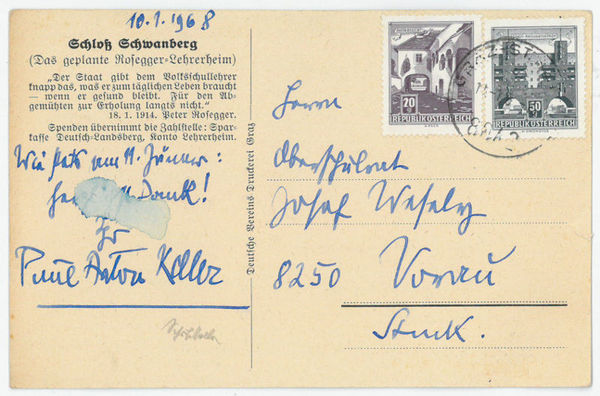 10.1.1968
Schloß Schwanberg
(Das geplante Rosegger-Lehrerheim)
„Der Staat gibt dem Volksschullehrer
knapp das, was er zum täglichen Leben braucht
— wenn er gesund bleibt. Für den Ab-
gemühten zur Erholung langts nicht."
18. 1. 1914. Peter Rosegger.
Spenden übernimmt die Zahlstelle: Spar-
kasse Deutsch-Landsberg, Konto Lehrerheim.
Wie stets am 11. Jänner:
Dank!
Ihr
Paul Anton Keller
Deutsche Vereins Druckerei Graz
20
REPUBLIK ÖSTERREICH
50
REPUBLIK ÖSTERREICH
GRAZ
Herrn
Oberschulrat
Josef Wesely
8250 Vorau
Stmk.